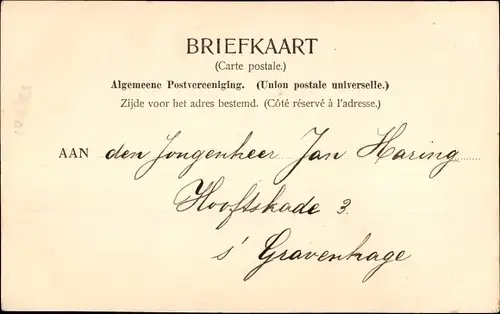 BRIEFKAART
(Carte postale.)
Algemeene Postvereeniging. (Union postale universelle.)
Zijde voor het adres bestemd. (Côté réservé à l'adresse.)
AAN den Jongenheer Jan Haring
Hooftskade 3.
s' Gravenhage